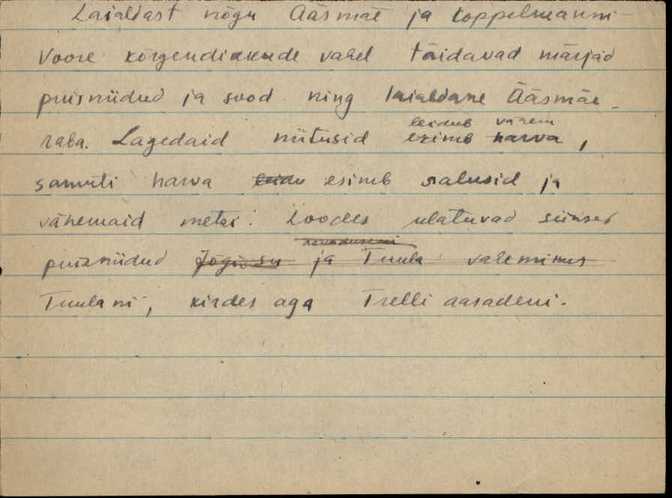 Laialdast nõgu Ääsmäe ja Koppelmanni
Voore kõrgendikkude vahel täidavad märjad
puisniidud ja sood ning laialdane Ääsmäe
raba. Lagedaid niitusid esineb harva,
leidub vähem
samuti harva esineb salusid ja
vähemaid metsi. Loodes ulatuvad siinsed
puisniidud Jõgisu ja Tuula vahemikus
Tuulani, kirdes aga Trelli aasadeni.